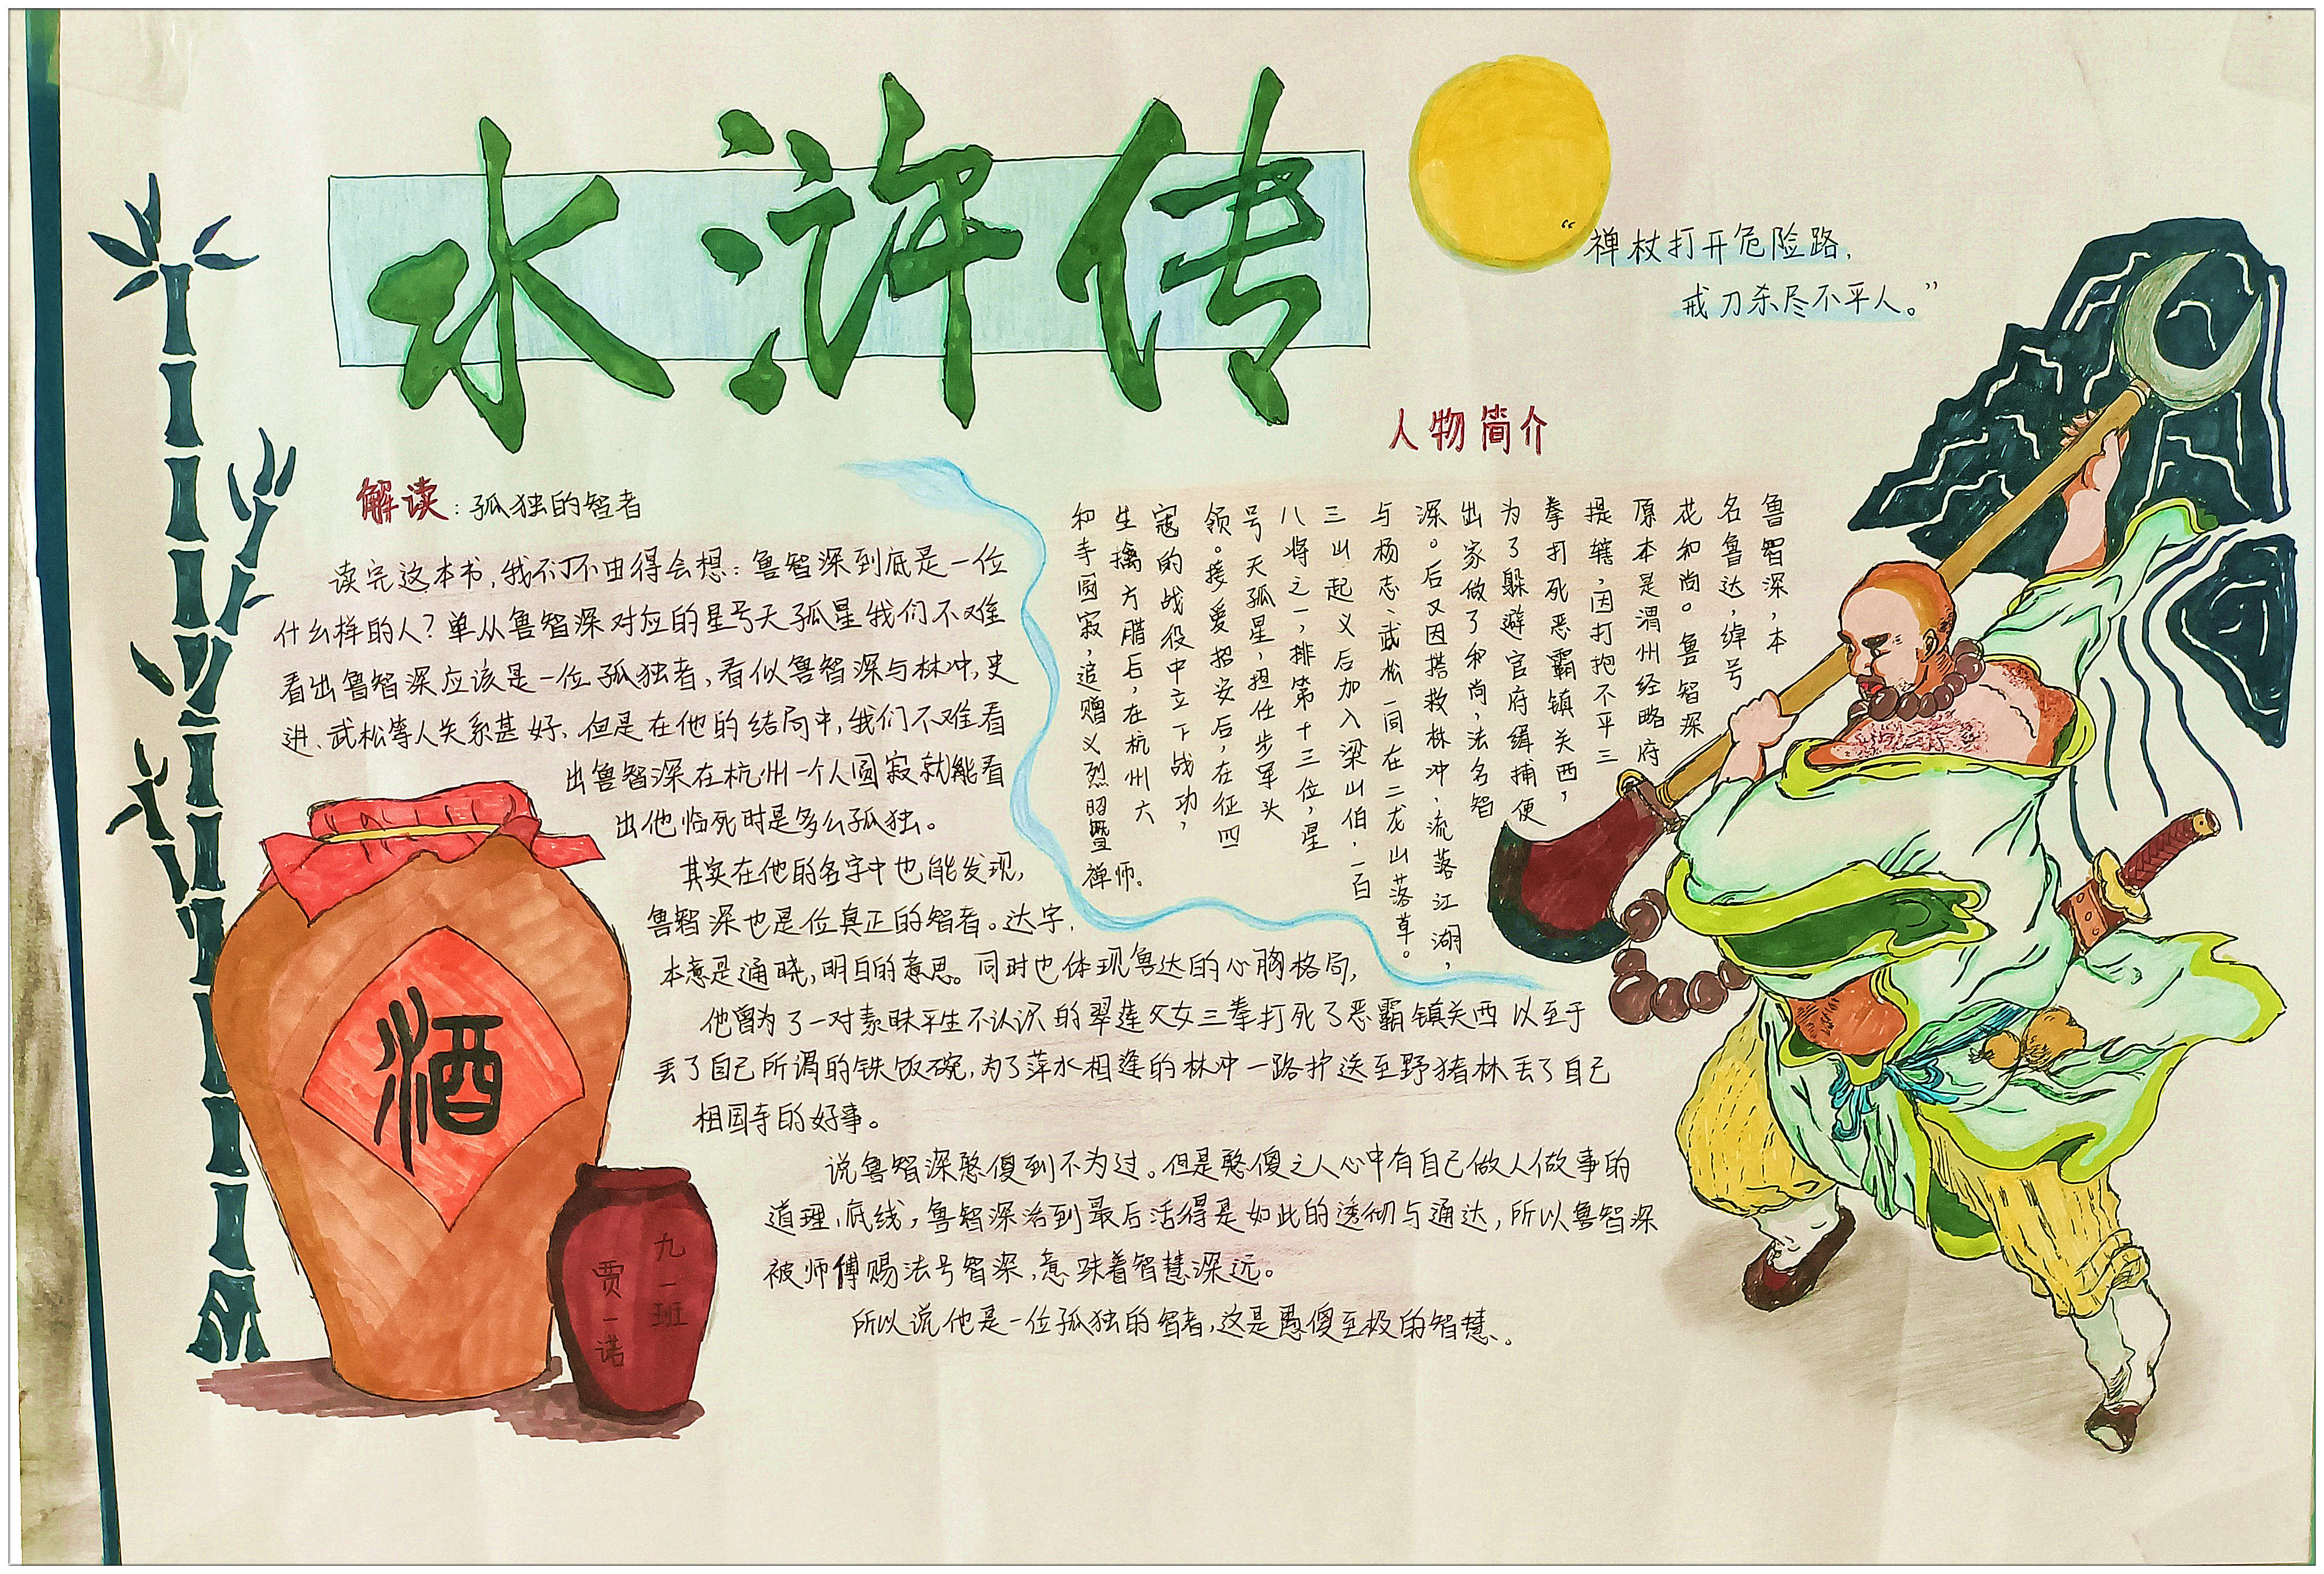 水浒传
“禅杖打开危险路,
戒刀杀尽不平人。”
人物简介
鲁智深，本
名鲁达，绰号
花和尚。鲁智深
原本是渭州经略府
提辖，因打抱不平三
拳打死恶霸镇关西，
为了躲避官府缉捕便
出家做了和尚，法名智
深。后又因搭救林冲、流落江湖，
与杨志、武松一同在二龙山落草。
三山起义后加入梁山伯，一百
八将之一，排第十三位，星
号天孤星，担任步军头
领。接爱招安后，在征四
寇的战役中立下战功，
生擒方腊后，在杭州六
和寺圆寂，追赠义烈昭暨
禅师。
解读：孤独的智者
读完这本书，我不不由得会想：鲁智深到底是一位
什么样的人？单从鲁智深对应的星号天孤星我们不难
看出鲁智深应该是一位孤独者，看似鲁智深与林冲，史
进、武松等人关系甚好、但是在他的结局中，我们不难看
出鲁智深在杭州一个人圆寂就能看
出他临死时是多么孤独。
其实在他的名字中也能发现，
鲁智深也是位真正的智者。达字，
本意是通晓，明白的意思。同时也体现鲁达的心胸格局，
他曾为了一对素昧平生不认识的翠莲父女三拳打死了恶霸镇关西以至于
丢了自己所谓的铁饭碗，为了萍水相逢的林冲一路护送至野猪林丢了自己
相国寺的好事。
说鲁智深憨傻到不为过。但是憨傻之人心中有自己做人做事的
道理、底线，鲁智深活到最后活得是如此的透彻与通达，所以鲁智深
被师傅赐法号智深，意味着智慧深远。
所以说他是一位孤独的智者，这是愚傻至极的智慧、。
酒
九一班
贾一诺